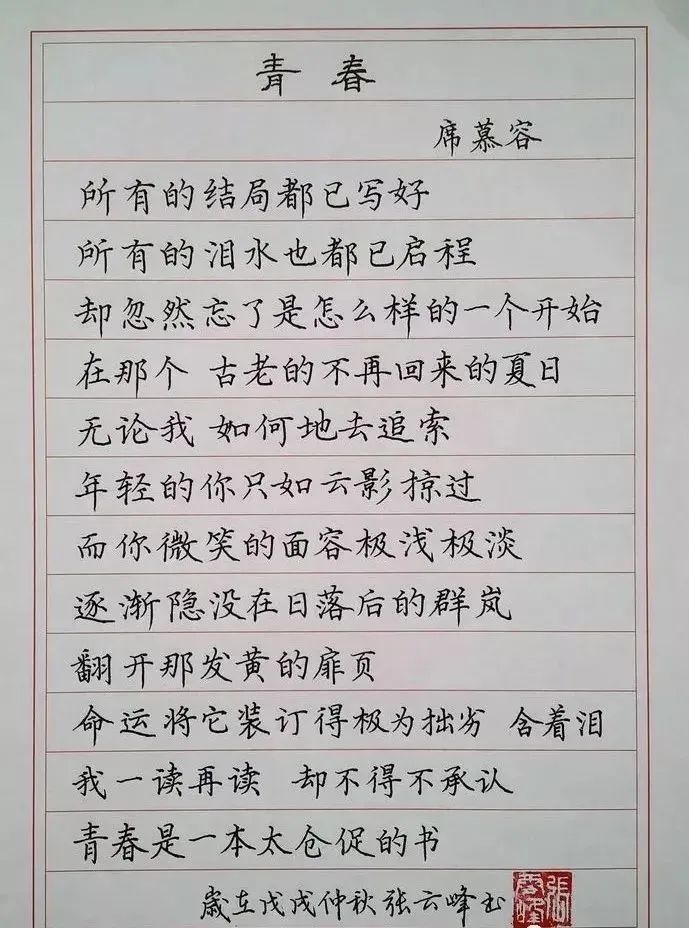 青春
席慕容
所有的结局都已写好
所有的泪水也都已启程
却忽然忘了是怎么样的一个开始
在那个 古老的不再回来的夏日
无论我 如何地去追索
年轻的你只如云影掠过
而你微笑的面容极浅极淡
逐渐隐没在日落后的群岚
翻开那发黄的扉页
命运将它装订得极为拙劣 含着泪
我一读再读 却不得不承认
青春是一本太仓促的书
歲在戊戌仲秋张云峰书